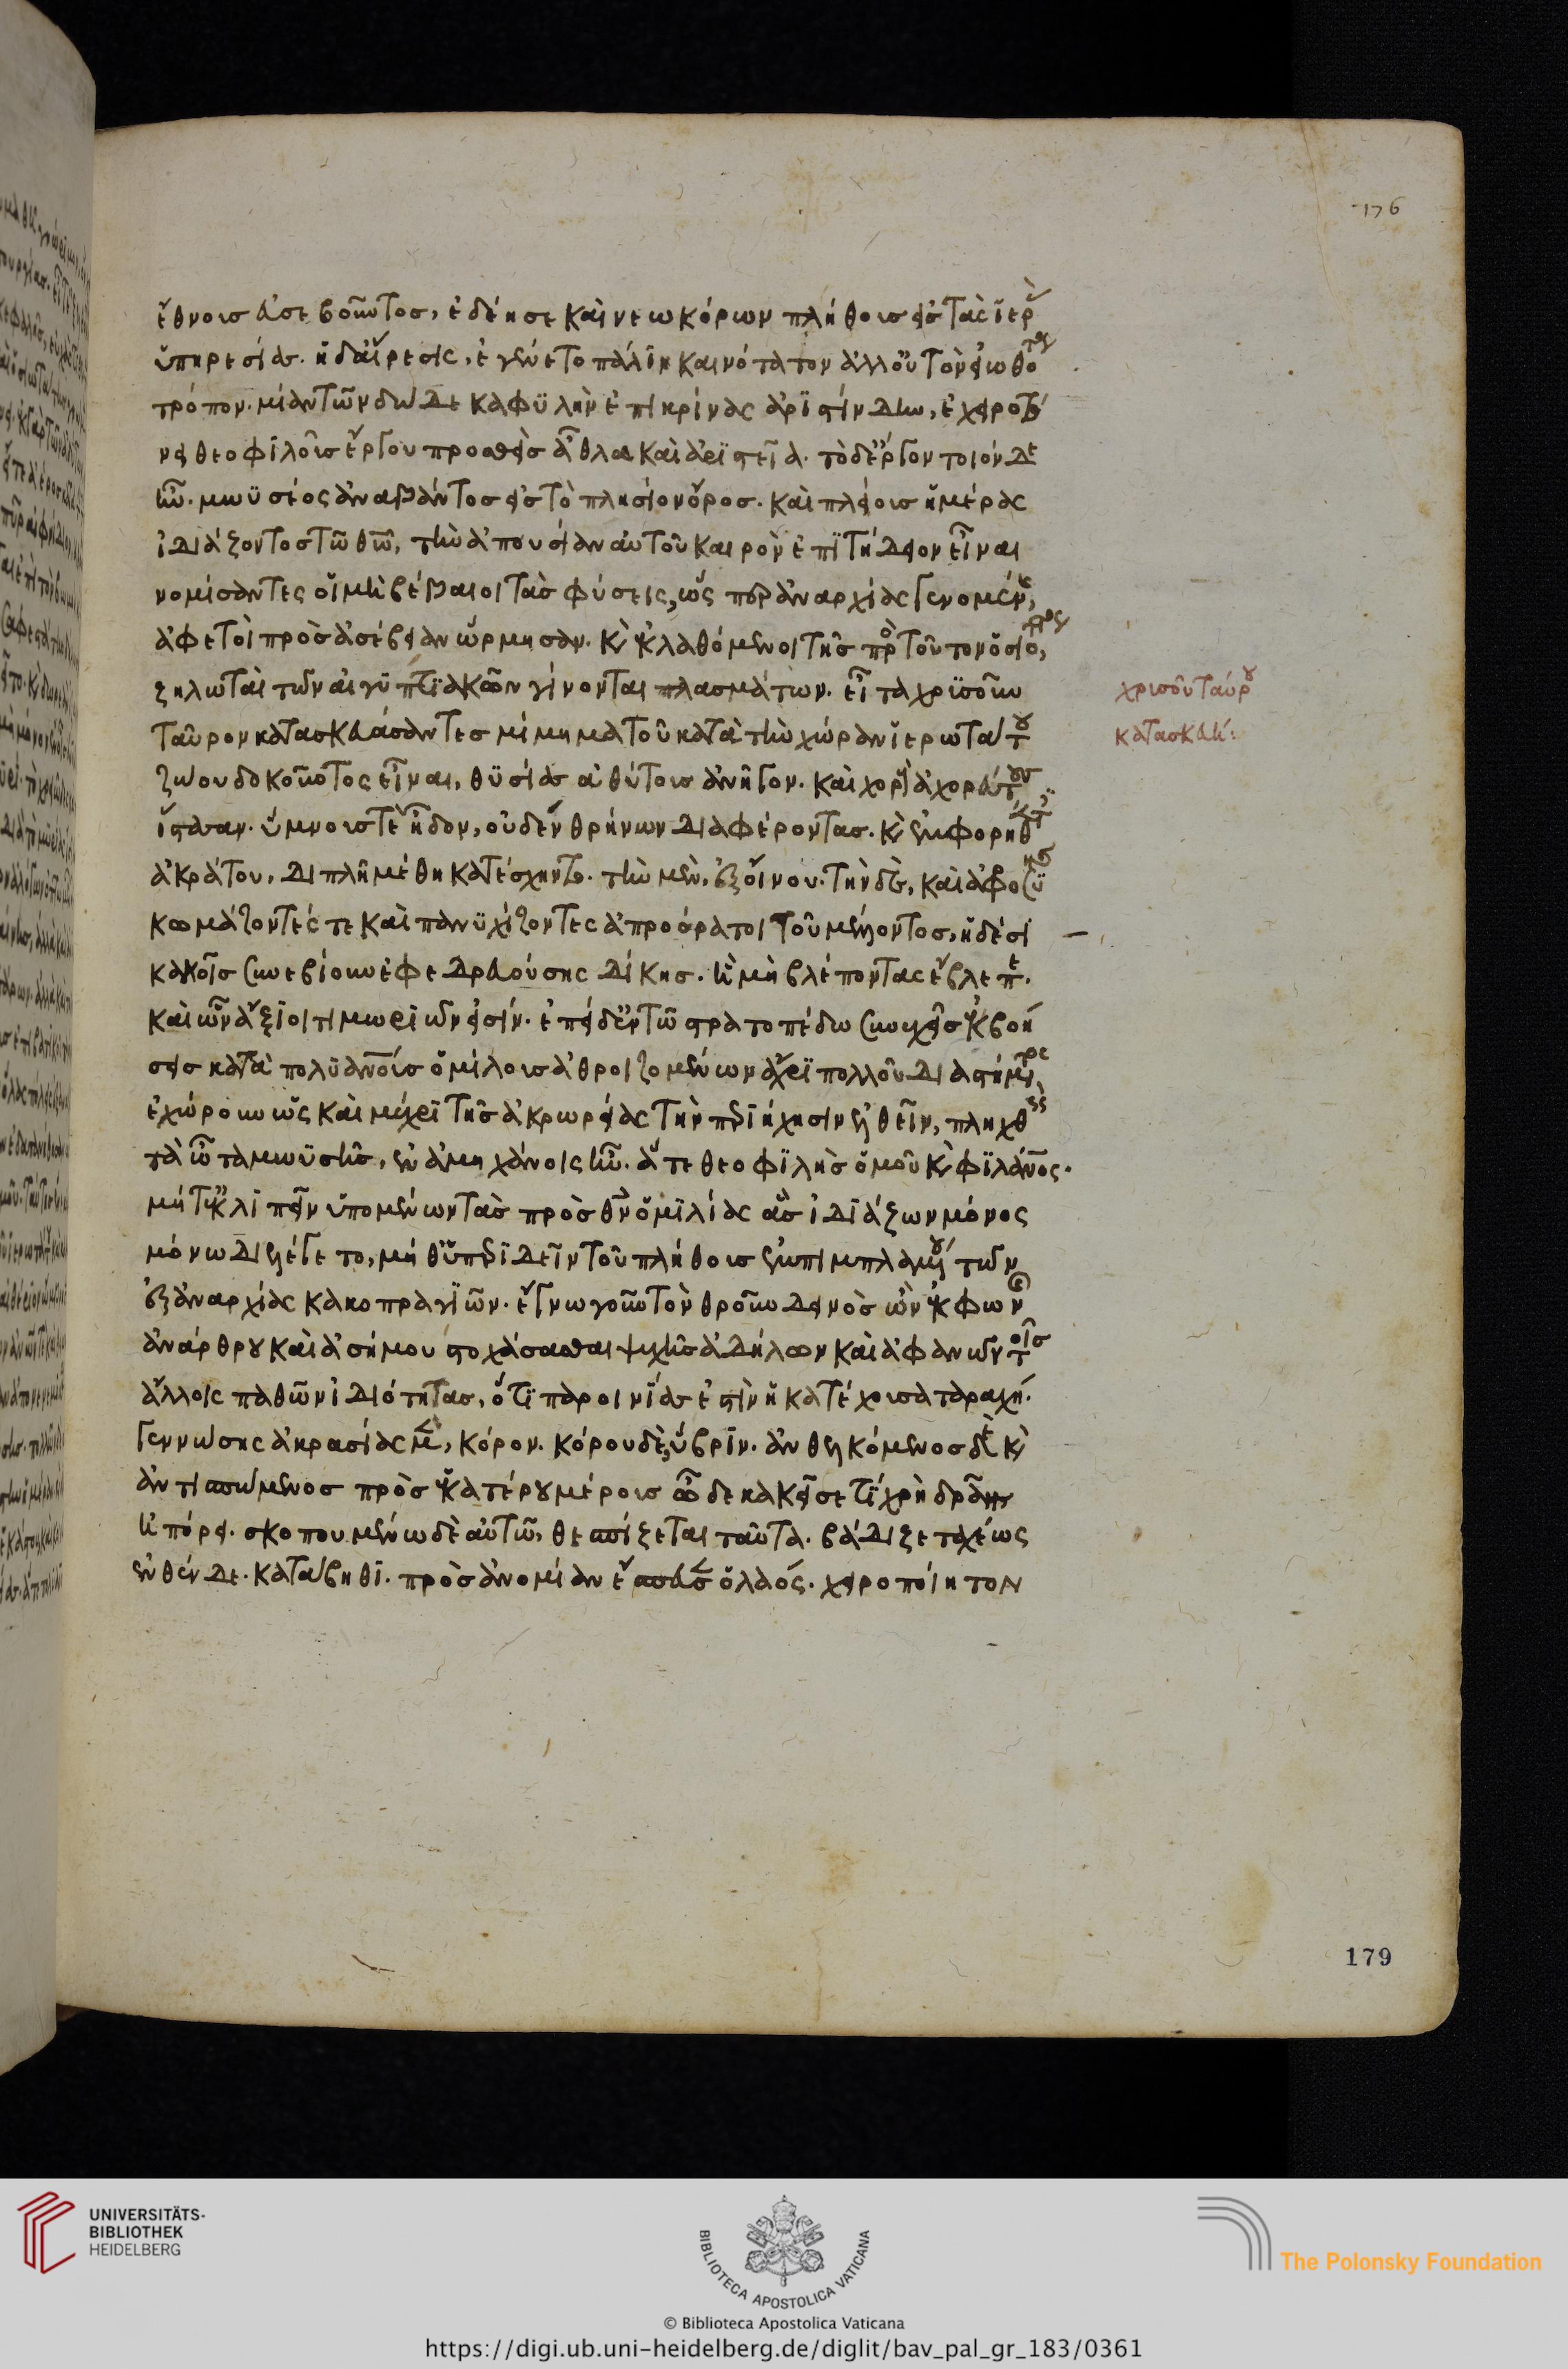 ἔθνους εὐσεβοῦντος, ἐδέησε καὶ νεωκόρων πλήθους εἰς τὰς ἱερὰς
ὑπηρεσίας. ἡ δ' αἵρεσις, ἐγένετο πάλιν καινότατον ἀλλ' οὐ τὸν εἰωθότα
τρόπον. μίαν τῶν δώδεκα φυλὴν ἐπικρίνας ἀριστίνδην, ἐχειροτό
νει θεοφιλοῦς ἔργου προθεὶς ἆθλα καὶ ἀριστεῖα. τὸ δ' ἔργον τοιόνδε
ἦν. μωϋσέος ἀναβάντος εἰς τὸ πλησίον ὄρος. καὶ πλείους ἡμέρας
ἰδιάζοντος τῶ θῶ, τὴν ἀπουσίαν αὐτοῦ καιρὸν ἐπιτήδειον εἶναι
νομίσαντες οἱ μὴ βέβαιοι τὰς φύσεις, ὡς περ ἀναρχίας γενομένης,
ἄφετοι πρὸς ἀσέβειαν ὥρμησαν. κὶ ἐκλαθόμενοι τῆς πρὸς τοῦτον ὁσιότητος,
ζηλωταὶ τῶν αἰγυπτιακῶν γίνονται πλασμάτων. εἶτα χρυσοῦν
ταῦρον κατασκευάσαντες μίμημα τοῦ κατὰ τὴν χώραν ἱερωτάτου
ζώου δοκοῦντος εἶναι, θυσίας ἀθύτους ἀνῆγον. καὶ χοροὺς ἀχορεύτους
ἵστασαν. ὕμνους τὲ ἦδον, οὐδὲν θρήνων διαφέροντας. κὶ ἐμφορηθέντες
ἀκράτου, διπλῆ μέθη κατέσχηντο. τὴν μὲν, ἐξ οἴνου. τὴν δὲ, καὶ ἀφροσύνης
κωμάζοντές τε καὶ παννυχίζοντες ἀπροόρατοι τοῦ μέλλοντος, ἡδέσι
κακοῖς συνεβίουν ἐφεδρευούσης δίκης. ἣ μὴ βλέποντας ἔβλεπε.
καὶ ὧν ἄξιοι τιμωριῶν εἰσίν. ἐπεὶ δ' ἐν τῶ στρατοπέδω συνεχεῖς ἐκβοή
σεις κατὰ πολυανούς ὁμίλους ἀθροιζομένων ἄχρι πολλοῦ διαστήματος,
ἐχώρουν ὡς καὶ μέχρι τῆς ἀκρωρείας τὴν περιήχησιν ἐλθεῖν, πληχθεὶς
τὰ ὦτα μωϋσῆς, ἐν ἀμηχάνοις ἦν. ἅτε θεοφιλὴς ὁμοῦ κὶ φιλάνος.
μήτ' ἐκλιπεῖν ὑπομένων τὰς πρὸς θν ὁμιλίας ἃς ἰδιάζων μόνος
μόνω διελέγετο, μήθ' ὑπεριδεῖν τοῦ πλήθους ἐμπιμπλαμένου τῶν
ἐξ ἀναρχίας κακοπραγιῶν. ἔγνω γοῦν τὸν θροῦν δεινὸς ὢν ἐκ φωνῆς
ἀνάρθρου καὶ ἀσήμου στοχάσασθαι ψυχῆς ἀδήλων καὶ ἀφανῶν τοῖς
ἄλλοις παθῶν ἰδιότητας, ὅτι παροινίας ἐστὶν ἡ κατέχουσα ταραχή.
γεννώσης ἀκρασίας μὲν, κόρον. κόρου δὲ, ὕβριν. ἀνθελκόμενος δὲ κὶ
ἀντισπώμενος πρὸς ἑκατέρου μέρους ὧδε κἀκεῖσε τί χρὴ δρᾶν
ἠπόρει. σκοπουμένω δὲ αὐτῶ, θεσπίζεται ταῦτα. βάδιζε ταχέως
ἐνθένδε. κατάβηθι. πρὸς ἀνομίαν ἔσπευσεν ὁ λαός. χειροποίητον
χρυσοῦν ταύρου
κατασκευή:
176
179
UNIVERSITÄTS-
BIBLIOTHEK
HEIDELBERG
BIBLIOTECA APOSTOLICA VATICANA
The Polonsky Foundation
© Biblioteca Apostolica Vaticana
https://digi.ub.uni-heidelberg.de/diglit/bav_pal_gr_183/0361